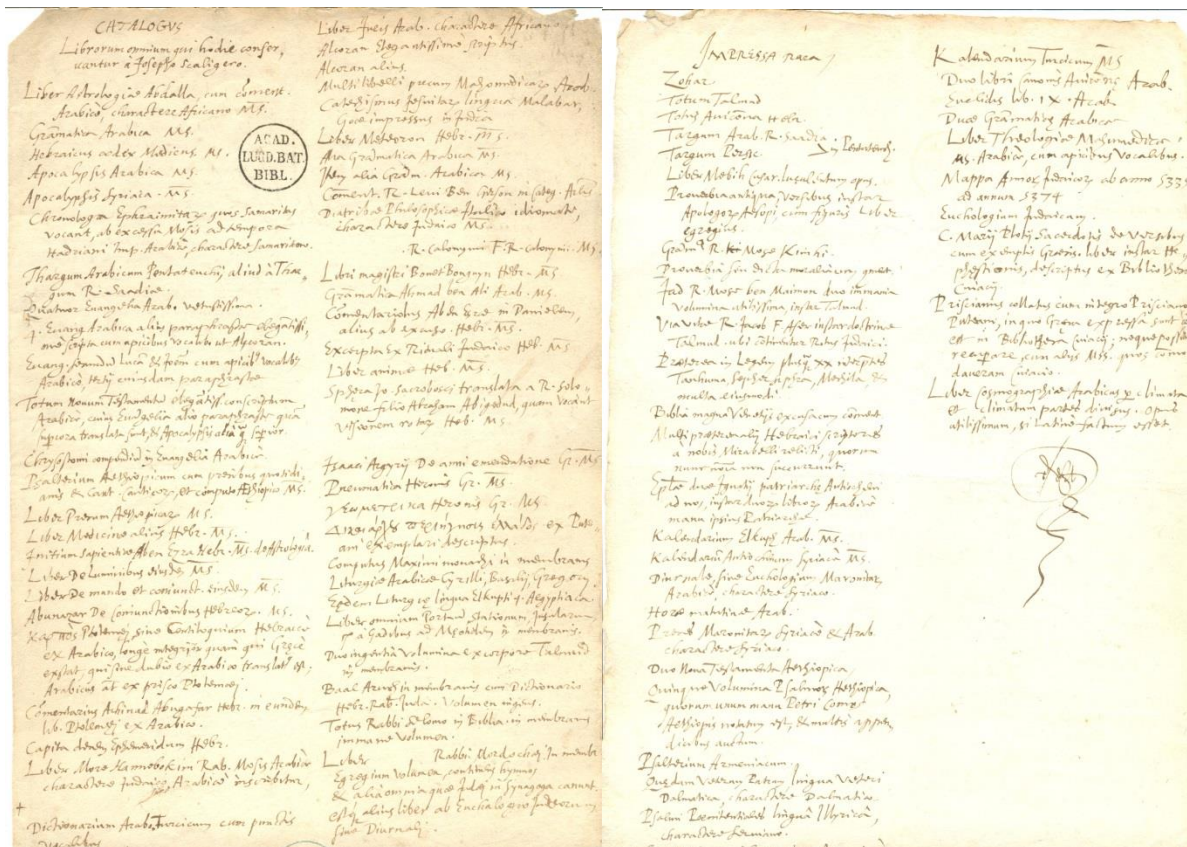 CATALOGVS
Librorum omnium qui hodie conser,
vantur à Josepho Scaligero.
Liber Astrologiae Abdalla, cum coment.
Arabicò, charactere Africano MS.
Gramatica Arabica MS.
Hebraicus codex Medicus MS.
Apocalypsis Arabica MS.
Apocalypsis Syriaca MS.
Chronologia Ephraimitar quos Samaritas
vocant, ab excessu Mosis ad tempora
Hadriani Imp. Arabicò, charactere Samaritano.
Thargum Arabicum Pentateuchj, aliud à Thar,
gum R. Saadiae.
Quatuor Evangelia Arab. vetustissima.
Evang. Arabica alius paraphrastae elegantissi,
me scripta cum apicibus vocalibus ut Alcoran.
Totum Novum Testamentum elegantiss. conscriptum
Arabicò, cuius Evangelia alio paraphraste quam
superiora translata sunt, & Apocalypsis alia superior.
Chrysostomi in Evangelia Arabicè.
Psalterium Aethiopicum cum precibus quotidi,
anis & Cant. Canticor, et computo Aethiopico MS.
Liber Precum Aethiopicar MS.
Liber Medicinae alius Hebr. MS.
Initium Sapientiae Aben Ezra Hebr. MS. de Astrologia.
Liber De Luminibus eiusdem MS.
Liber De mundo et coniunct. eiusdem MS.
Abumazar De Coniunctionibus Hebraicè. MS.
Καρπὸς Ptolemaej, sive Centiloquium Hebraicè
ex Arabico, longè integrius quam qui Graecè
exstat, qui sine dubio ex Arabico translat est,
Arabicus at ex prisco Ptolemaej.
lib. Ptolemaej ex Arabico.
Ephemeridum Hebr.
Liber More Hannebokim Rab. Mosis Arabicè
charactere Judaico, Arabicè inscribitur,
Dictionarium Arabo Turcicum cum punctis
Vocalibus
ACAD.
LUGD. BAT.
BIBL.
Liber Arab. charactere Africano
Alcoran Elegantissime scriptus.
Alcoran alius.
Multi libelli precum Mahomedicar Arab.
Catechismus Jesuitar lingua Malabar,
Goae impressus in India
Liber Meteoron Hebr. MS.
Alia Gramatica Arabica MS.
Item alia Gram. Arabica MS.
Coment. R. Levi Ben Gerson in
Diatribae Philosophicae Italico idiomate,
charactere Judaico MS.
R. Calonymi F. R. Calonymi. MS.
Libri magistri Bonet Bonsyn Hebr. MS
Gramatica Ahmad ben Ali Arab. MS.
Comentarius Aben Ezre in Danielem,
alius ab excuso. Hebr. MS.
Excerpta Ex Judaico Heb. MS.
Liber animae Heb. MS.
Sphaera Jo Sacrobosci translata a R. Solo,
mone filio Abraham Abigedud, quam vocant
visionem rotar Heb. MS
Isaaci Argyrij De anni emendatione Gr. MS
Pneumatica Heronis Gr. MS.
Γεωμετρικα Heronis Gr. MS.
περιήγησις Ἑλλάδος ex Pute
ani exemplari descriptus.
Computus Maximi monachj in membranis
Liturgiae Arabicae Cyrilli, Basilij Gregorij.
Eaedem Liturgiae lingua Elkupti q. Aegyptiaca
Liber omnium Portuum, Stationum, Insularum
à Gadibus ad in membranis.
Duo ingentia Volumina ex corpore Talmud
in membranis.
Baal Aruch in membranis cum Dictionario
Hebr. Rab. Juda. Volumen ingens.
Totus Rabbi Selomo in Biblia. in membranis
immane volumen.
Liber Rabbi Mordochaj In membr
Egregium Volumen, continens hymnos
& alia omnia quae Judaej in Synagoga canunt.
estque alius liber ab Euchologio Judaeorum
sive Diurnali.
IMPRESSA RARA
Zohar
Totum Talmud
Totus Avicenna Hebr.
Targum Arab. R. Saadia.
Targum Persic.
in Pentateuch.
Liber Mebih Cuzar. lusulentum opus.
Proverbia antiqua, versibus instar
Apologor Aesopi, cum figuris Liber
egregius.
Gram. R. Mose Kimhi.
Proverbia seu dicta moralia quae
Jad R. Mose ben Maimon duo immania
Volumina utilissima, instar Talmud.
Via vitae R. Jacob F. Aser instar doctrinae
Talmud. ubi continentur Ritus Judaici.
Praeterea in Legem plus XX interpretes
Tanhuma, Sepher, siphra, Mechilta, &
multa eiusmodi.
Biblia magna Venetijs excusa cum coment
Multi praeterea alij Hebraici scriptores
a nobis Mirabelli relicti, quorum
nunc non succurrunt.
Eplae duae Ignatij patriarchae Antiocheni
ad nos, instar duor libror Arabicae
manu ipsius Patriarchae.
Kalendarium Elkupti Arab. MS.
Kalendarium Antiochenum Syriacum MS
Diurnale, sive Euchologium Maronitar
Arabicò, charactere Syriaco.
Horae matutinae Arab.
Preces Maronitar Syriacè & Arab.
charactere Syriaco.
Duo Nova Testamenta Aethiopica,
Quinque Volumina Psalmor Aethiopica,
quorum unum manu Petri
Aethiopis notatum est, & multis appen,
dicibus auctum.
Psalterium Armeniacum.
Quaedam Veterum Patrum lingua Veteri
Dalmatica, charactere Dalmatico.
Psalmi Poenitentiales lingua Illyrica,
charactere Serviano.
Kalendarium Turcicum MS
Duo libri Canonis Avicennae Arab.
Euclidis lib. IX. Arab.
Duae Gramaticae Arabicae
Liber Theologiae Mahumedicae
MS. Arabicè, cum apicibus Vocalibus.
Mappa Annor Judaicor ab anno 5335
ad annum 5374
Euchologium Judaicum.
C. Marij Plotij Sacerdotis de Versibus
cum exemplis Graecis. liber instar He,
phaestionis, descriptus ex Bibliotheca
Cuiacij.
Priscianus collatus cum integro Prisciano
Puteani, in quo Graeca expressa sunt
est in Bibliotheca Cuiacij, neque potui
recuperare, cum alijs MSS. quos como
daveram Cuiacio.
Liber Cosmographiae Arabicus climata
et climatum partes divisus. opus
utilissimum, si Latinè factum esset.